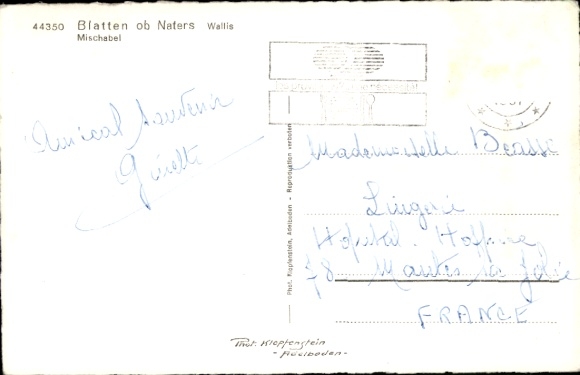 44350 Blatten ob Naters Wallis
Mischabel
Amical souvenir
Phot. Klopfenstein, Adelboden - Reproduktion verboten
Mademoiselle
Lingerie
Hopital.
78 Mantes la Jolie
FRANCE
Phot. Klopfenstein
- Adelboden -